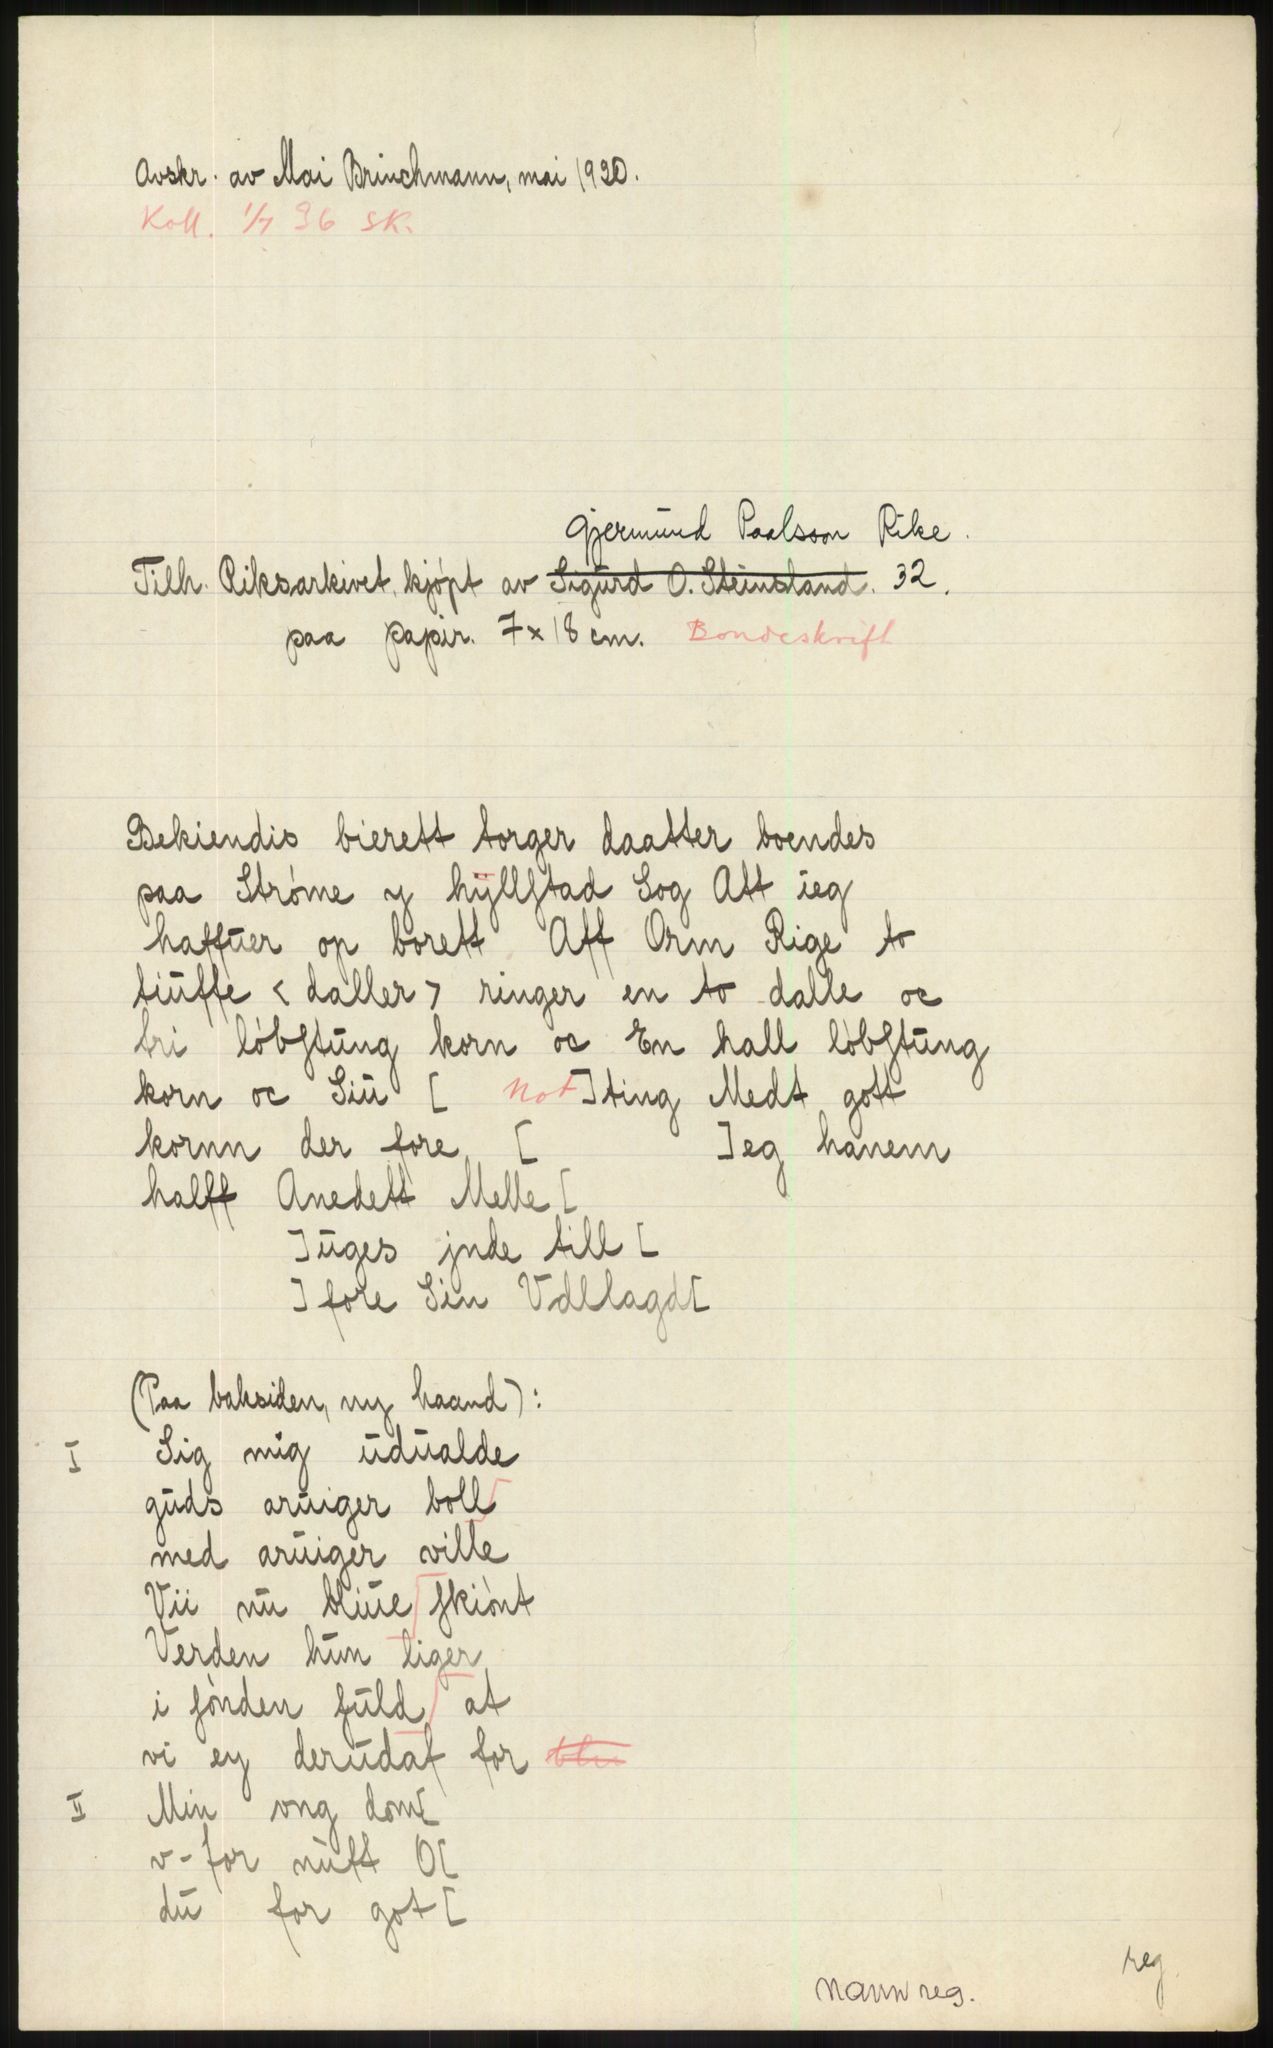 Avskr. av Mai Brinchmann, mai 1920.
Koll. 1/7 36 SK.
Gjermund Paalsson Rike.
Tilh. Riksarkivet, kjøpt av Sigurd O. Steinsland. 32.
paa papir. 7 x 18 cm. Bondeskrift
Bekiendis bierett torger daatter boendes
paa Strøme y hÿllstad Sog Att ieg
haffuer op borett Aff Orm Rige to
tiuffe < daller > ringer en to dalle oc
tri løbstung korn oc En hall løbstung
korn oc Siu [ not ]ting Medt gott
kornn der fore [ ]eg hanem
halff Anedett Melle [
]uges jnde till [
] fore Sin Vdllagd[
(Paa baksiden, ny haand):
I Sig mig udualde
guds aruiger boll
med aruiger ville
Vii nu bliue skiønt
Verden hun liger
i sønden fuld at
vi ey derudaf for blu
II Min vng dom[
v-for nuft O[
du for got [
reg.
Navnreg.